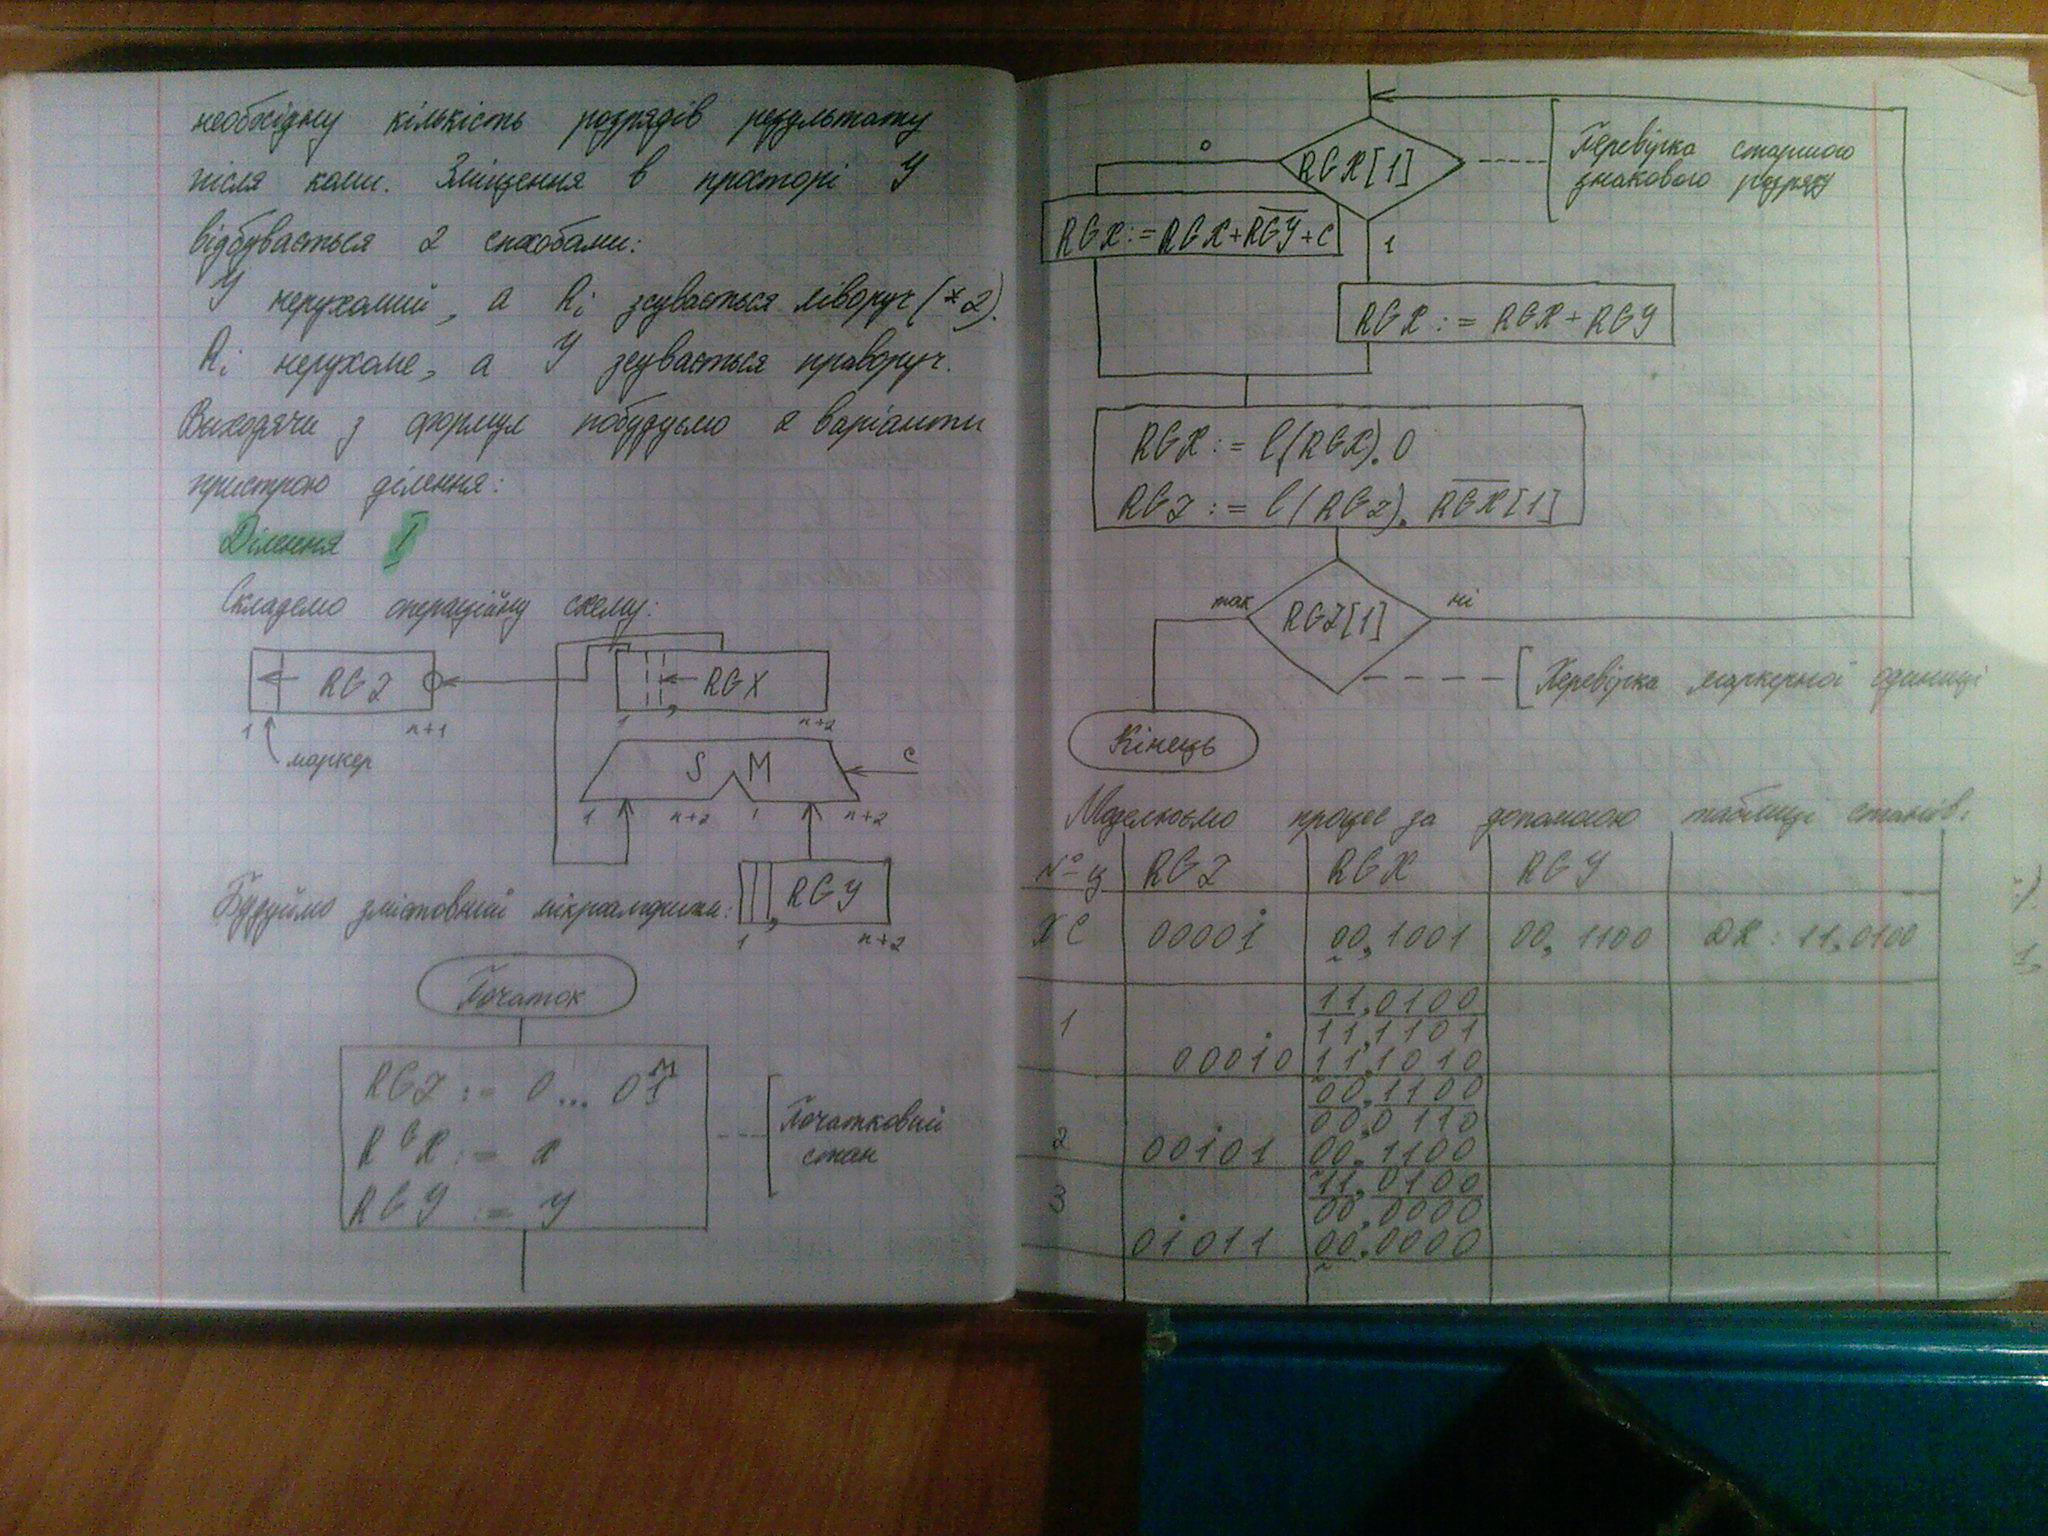 необхідну кількість розрядів результату
після коми. Зміщення в просторі Y
відбувається 2 способами:
Y нерухомий, а Ri зсувається ліворуч (*2).
Ri нерухоме, а Y зсувається праворуч.
Виходячи з формул побудуємо 2 варіанти
пристрою ділення:
Ділення I
Складемо операційну схему:
RGZ
1
n+1
маркер
RGX
1
,
n+2
SM
C
1
n+2
1
n+2
Будуймо змістовний мікроалгоритм:
RGY
1
,
n+2
Початок
RGZ := 0...01
м
RGX := x
RGY := y
Початковий
стан
RGX[1]
0
1
Перевірка старшого
знакового розряду
RGX := RGX + R̅G̅Y̅ + C
RGX := RGX + RGY
RGX := l(RGX).0
RGZ := l(RGZ). R̅G̅X̅[1]
RGZ[1]
так
ні
Перевірка маркерної одиниці
Кінець
Моделюємо процес за допомогою таблиці станів:
№ц RGZ RGX RGY
ПС 00001 00,1001 00,1100 ДК: 11,0100
1 11,0100
11,1101
00010 11,1010
00,1100
00,0110
2 00101 00,1100
3 11,0100
00,0000
01011 00,0000